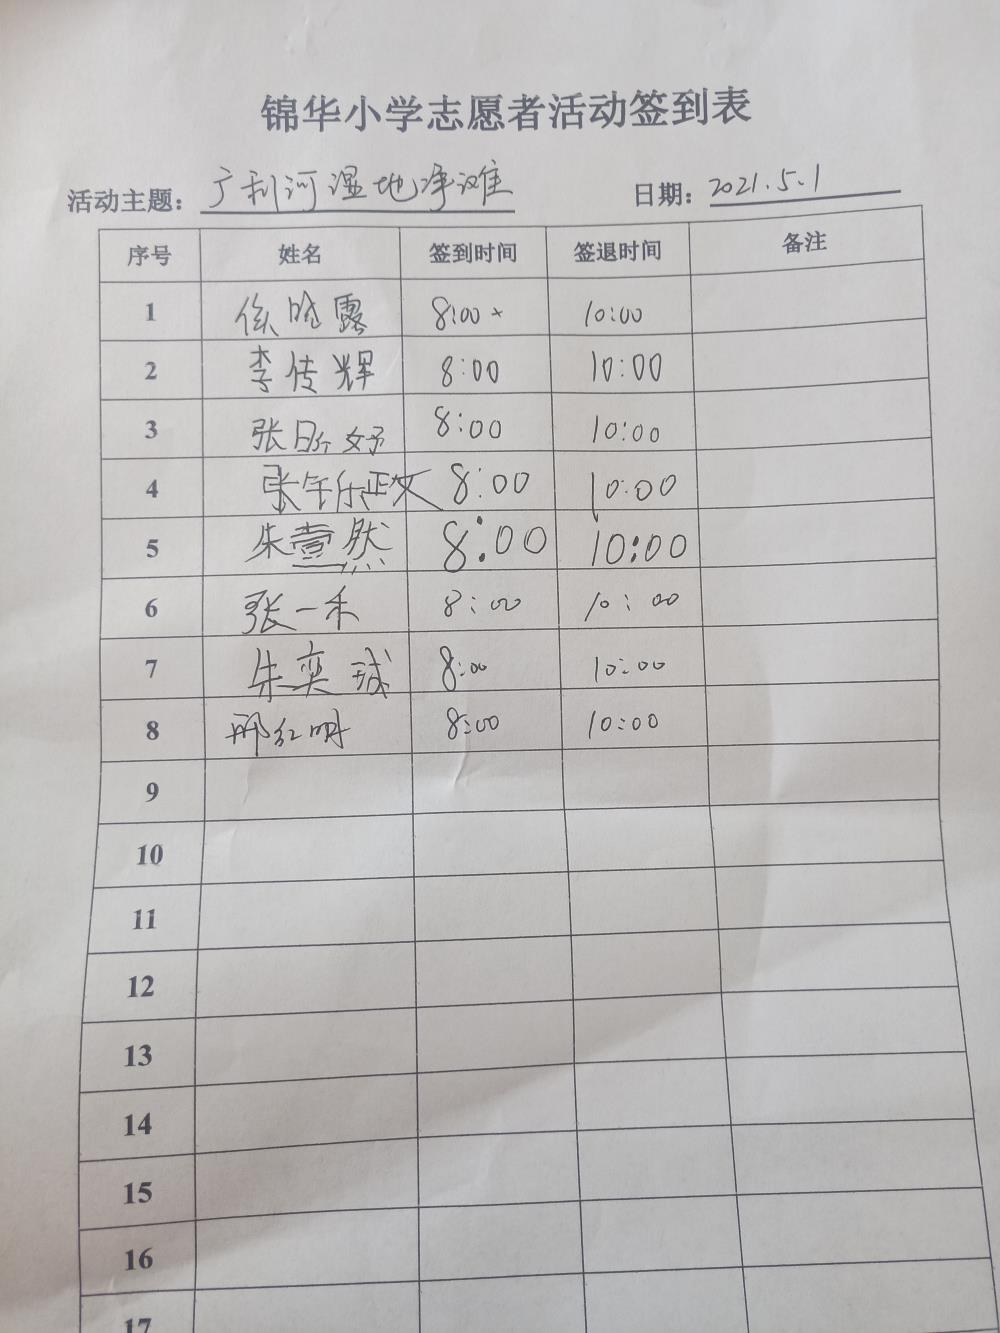 锦华小学志愿者活动签到表
活动主题：广利河湿地净滩 日期：2021.5.1
序号 姓名 签到时间 签退时间 备注
1 侯晓露 8:00 10:00
2 李传辉 8:00 10:00
3 张 8:00 10:00
4 张 8:00 10:00
5 朱壹然 8:00 10:00
6 张一禾 8:00 10:00
7 朱奕 8:00 10:00
8 邢红明 8:00 10:00
9
10
11
12
13
14
15
16
17